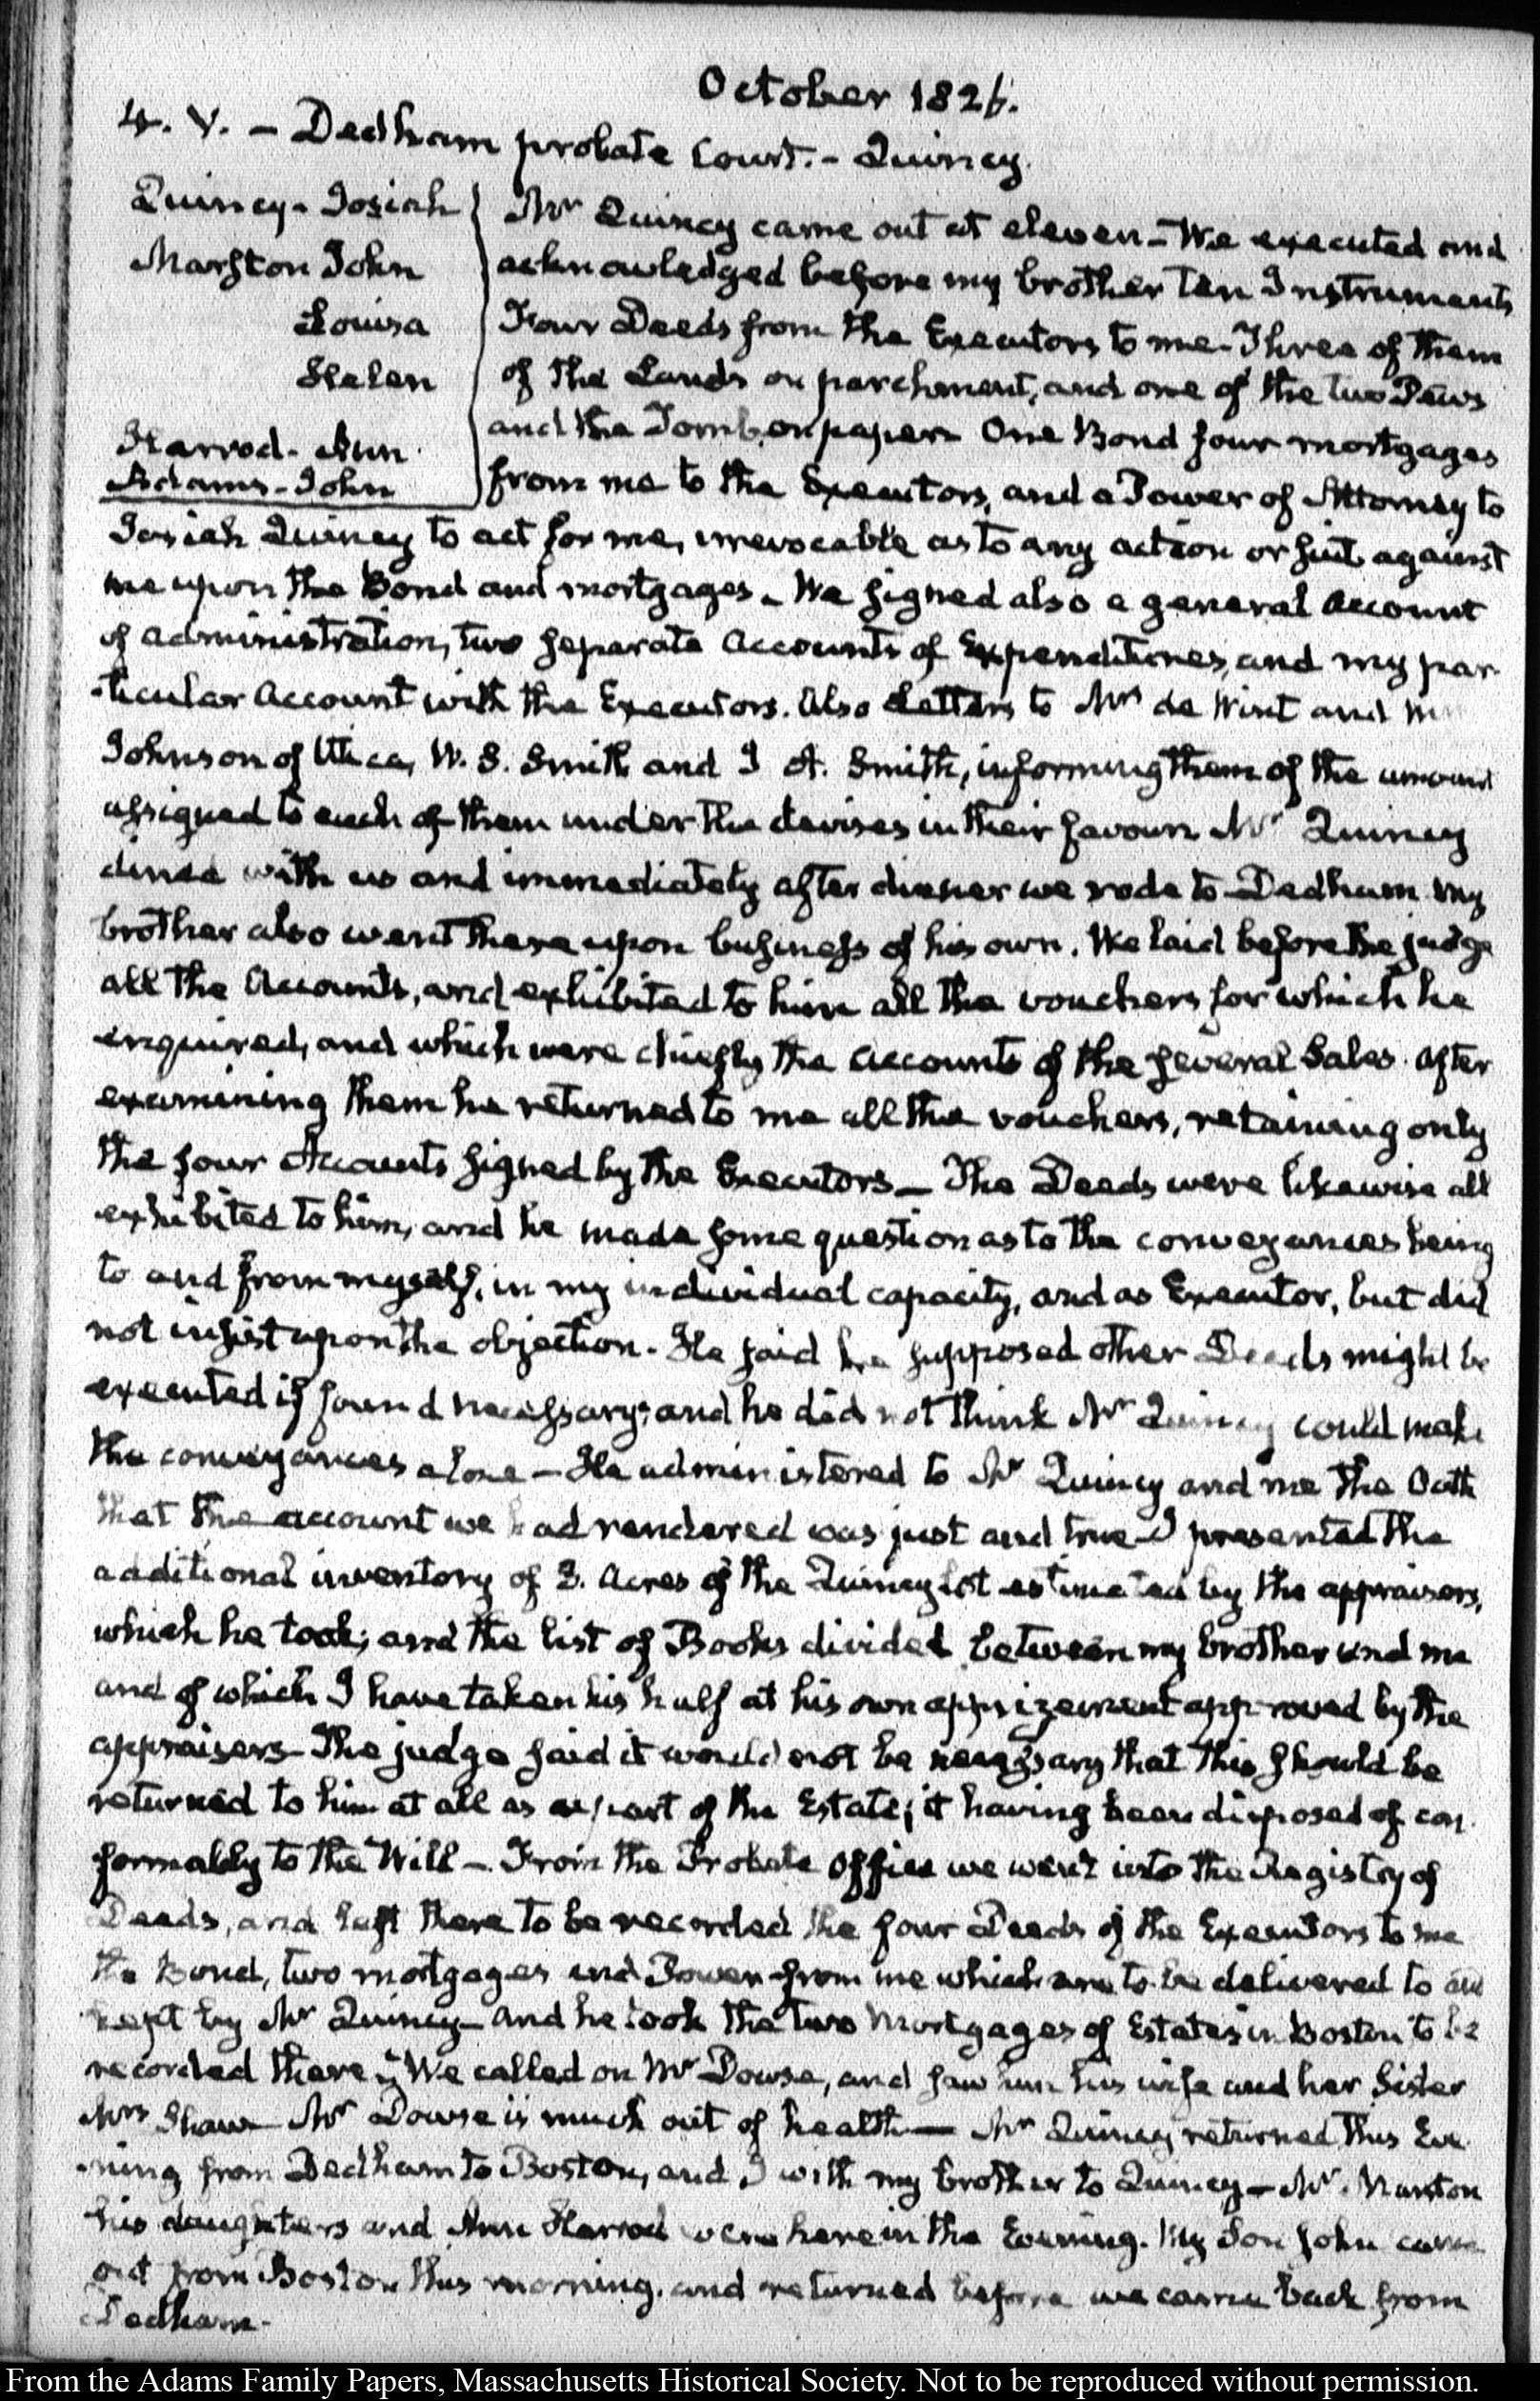 October 1826.
4. V. — Dedham probate Court. - Quincy.
Quincy - Josiah
Marston John
Louisa
Helen
Harrod - Ann
Adams - John
Mr Quincy came out at eleven — We executed and
acknowledged before my brother ten Instruments
Four Deeds from the Executors to me - Three of them
of the Lands on parchment, and one of the two Pews
and the Tomb, on paper. One Bond four mortgages
from me to the Executors, and a Power of Attorney to
Josiah Quincy to act for me, irrevocable as to any action or suit against
me upon the Bond and mortgages. We signed also a general Account
of administration, two separate Accounts of Expenditures, and my par-
-ticular Account with the Executors. Also Letters to Mr de Wint and
Johnson of Utica, W. S. Smith and J. A. Smith, informing them of the amount
assigned to each of them under the devises in their favour. Mr Quincy
dined with us and immediately after dinner we rode to Dedham. My
brother also went there upon business of his own. We laid before the judge
all the Accounts, and exhibited to him all the vouchers for which he
enquired, and which were chiefly the Accounts of the several Sales. After
examining them he returned to me all the vouchers, retaining only
the four Accounts signed by the Executors — The Deeds were likewise all
exhibited to him, and he made some question as to the conveyances being
to and from myself, in my individual capacity, and as Executor, but did
not insist upon the objection. He said he supposed other Deeds might be
executed if found necessary; and he did not think Mr Quincy could make
the conveyances alone — He administered to Mr Quincy and me the Oath
that the account we had rendered was just and true — I presented the
additional inventory of 3. Acres of the Quincy lot estimated by the appraisers,
which he took; and the list of Books divided between my brother and me
and of which I have taken his half at his own apprizement approved by the
appraisers - The judge said it would not be necessary that this should be
returned to him at all as a part of the Estate; it having been disposed of con-
formably to the Will — From the Probate office we went into the Registry of
Deeds, and left there to be recorded the four Deeds of the Executors to me
the Bond, two mortgages and Power from me which are to be delivered to and
kept by Mr Quincy — and he took the two Mortgages of Estates in Boston to be
recorded there. We called on Mr Dowse, and saw him his wife and her Sister
Mrs Shaw — Mr Dowse is much out of health — Mr Quincy returned this Eve-
-ning from Dedham to Boston, and I with my brother to Quincy — Mr Marston
his daughters and Ann Harrod were here in the Evening. My Son John came
out from Boston this morning, and returned before we came back from
Dedham.
From the Adams Family Papers, Massachusetts Historical Society. Not to be reproduced without permission.